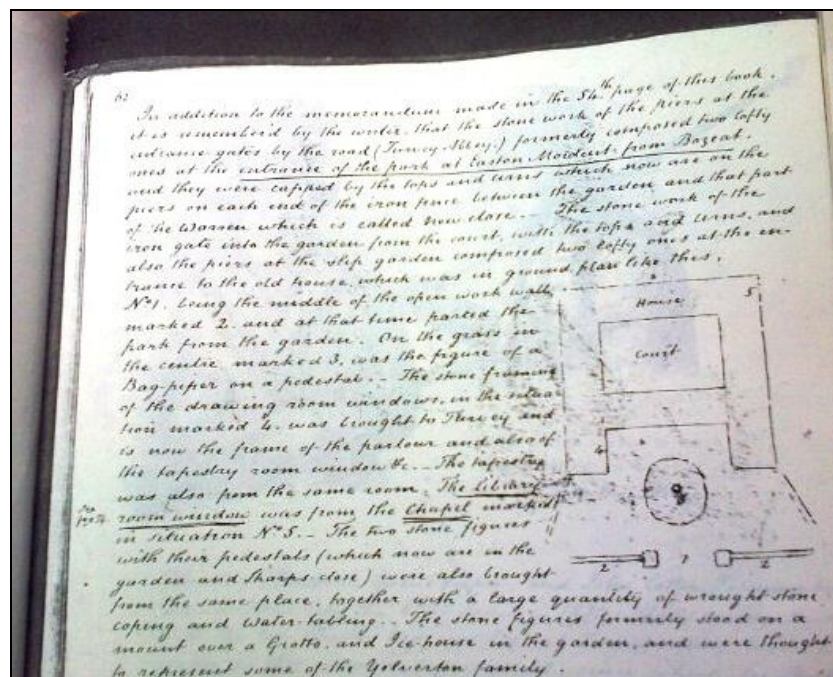 62
In addition to the memorandum made in the 54th page of this book,
it is remember'd by the writer, that the stone work of the piers at the
entrance gates by the road (Turvey Abbey,) formerly composed two lofty
ones at the entrance of the park at Easton Moidewit from Bozeat.
and they were capped by the tops and urns which now are on the
piers on each end of the iron fence between the garden and that part
of the Warren which is called New close. — The stone work of the
iron gate into the garden from the court, with the tops and urns, and
also the piers at the slip garden composed two lofty ones at the en-
trance to the old house, which was in ground plan like this,
No 1. being the middle of the open work wall,
marked 2. and at that time parted the
park from the garden. On the grass in
the centre marked 3, was the figure of a
Bag-piper on a pedestal. — The stone framing
of the drawing room windows, in the situa-
tion marked 4. was brought to Turvey and
is now the frame of the parlour and also of
the tapestry room window &c. — The tapestry
was also from the same room. The library
room window was from the Chapel marked
in situation No 5. — The two stone figures
with their pedestals (which now are in the
garden and Sharps close) were also brought
from the same place, together with a large quantity of wrought stone
coping and water-tabling. — The stone figures formerly stood on a
mount over a Grotto, and Ice-house in the garden, and were thought
to represent some of the Yelverton family.
House
5
Court
4
3
2
1
2